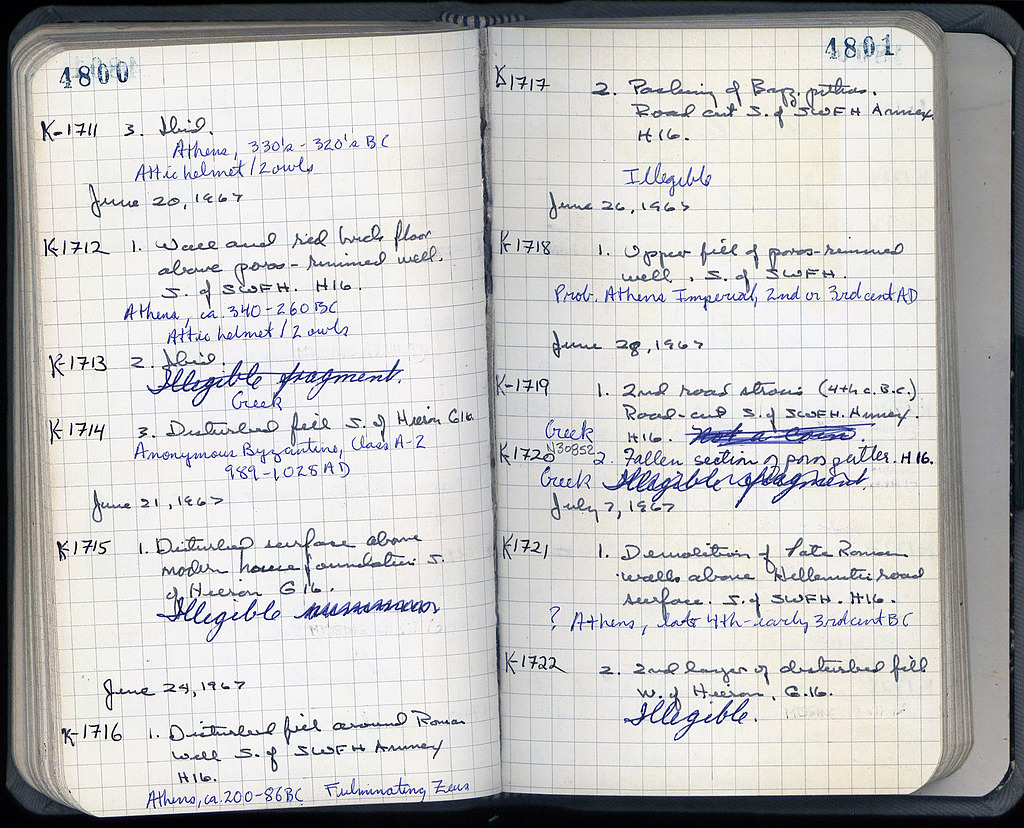 4800
K-1711 3. Ibid.
Athens, 330's - 320's BC
Attic helmet / 2 owls
June 20, 1967
K-1712 1. Wall and red brick floor
above poros-rimmed well.
S. of SWFH. H16.
Athens, ca. 340-260 BC
Attic helmet / 2 owls
K-1713 2. Ibid.
Illegible fragment.
Greek
K-1714 3. Disturbed fill S. of Hieron G16.
Anonymous Byzantine, Class A-2
989-1028 AD
June 21, 1967
K-1715 1. Disturbed surface above
modern house foundation S.
of Hieron G16.
Illegible
June 24, 1967
K-1716 1. Disturbed fill around Roman
well S. of SWFH Annex
H16.
Athens, ca. 200-86 BC Fulminating Zeus
4801
K1717 2. Packing of Byz. pithos.
Road cut S. of SWFH Annex,
H16.
Illegible
June 26, 1967
K-1718 1. Upper fill of poros-rimmed
well, S. of SWFH.
Prob. Athens Imperial, 2nd or 3rd cent AD
June 28, 1967
K-1719 1. 2nd road strosis (4th c. B.C.)
Road-cut S. of SWFH. Annex.
Greek H16. Not a Coin.
K-1720 N30852 2. Fallen section of poros gutter. H16.
Greek Illegible fragment.
July 7, 1967
K-1721 1. Demolition of Late Roman
walls above Hellenistic road
surface. S. of SWFH. H16.
? Athens, late 4th-early 3rd cent BC
K-1722 2. 2nd layer of disturbed fill
W. of Hieron, G.16.
Illegible.